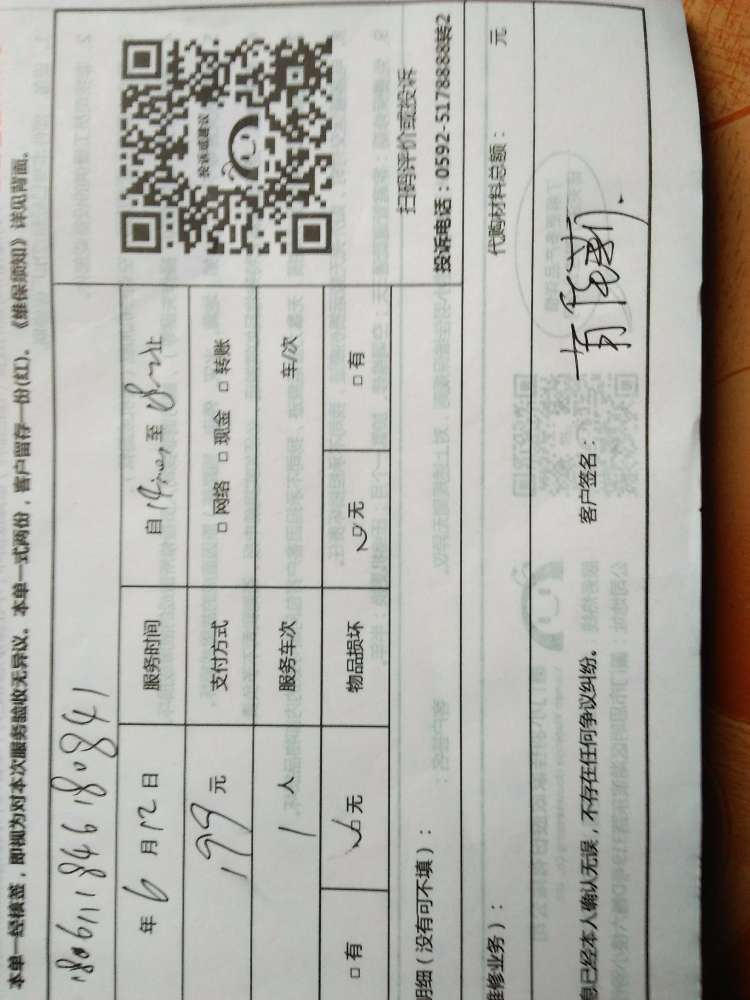 本单一经核签，即视为对本次服务验收无异议。本单一式两份，客户留存一份(红)。《维保须知》详见背面。
1806111846180841
年 6 月 12 日 服务时间 自 至 止
199 元 支付方式 □ 网络 □ 现金 □ 转账
1 人 服务车次 车/次
□ 有 ☑ 无 物品损坏 ☑ 无 □ 有
投诉或建议
扫码评价或投诉
投诉电话：0592-5178888转2
明细（没有可不填）：
维修业务）： 代购材料总额： 元
息已经本人确认无误，不存在任何争议纠纷。 客户签名：